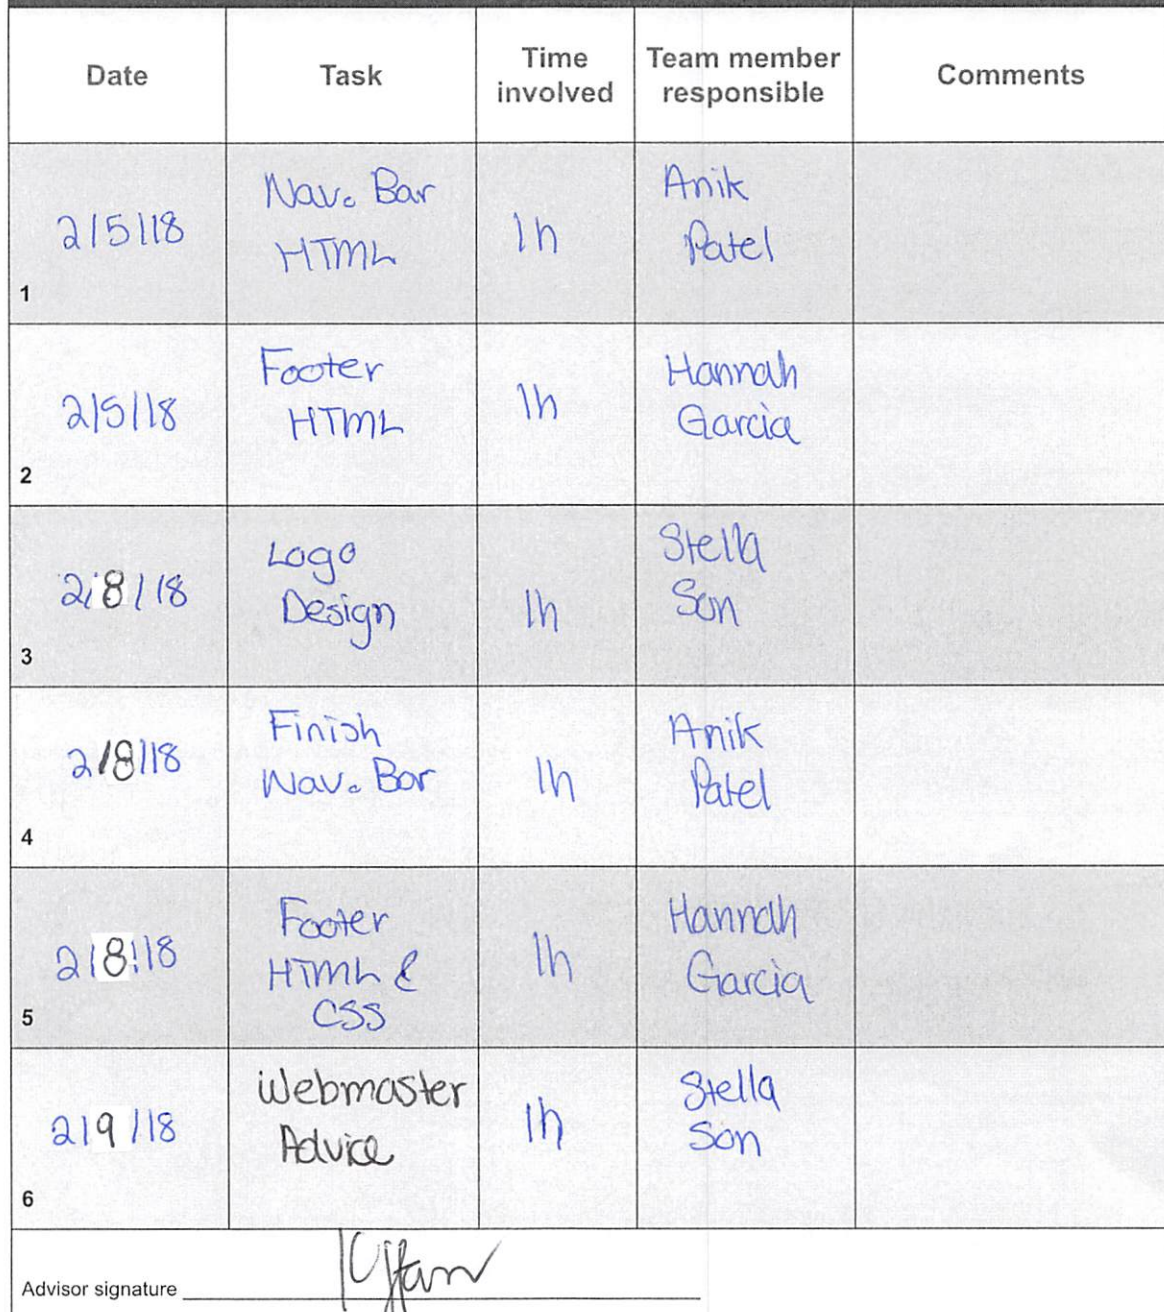 Date Task Time involved Team member responsible Comments
1 2/5/18 Nav. Bar HTML 1h Anik Patel
2 2/5/18 Footer HTML 1h Hannah Garcia
3 2/8/18 Logo Design 1h Stella Son
4 2/8/18 Finish Nav. Bar 1h Anik Patel
5 2/8/18 Footer HTML & CSS 1h Hannah Garcia
6 2/9/18 Webmaster Advice 1h Stella Son
Advisor signature